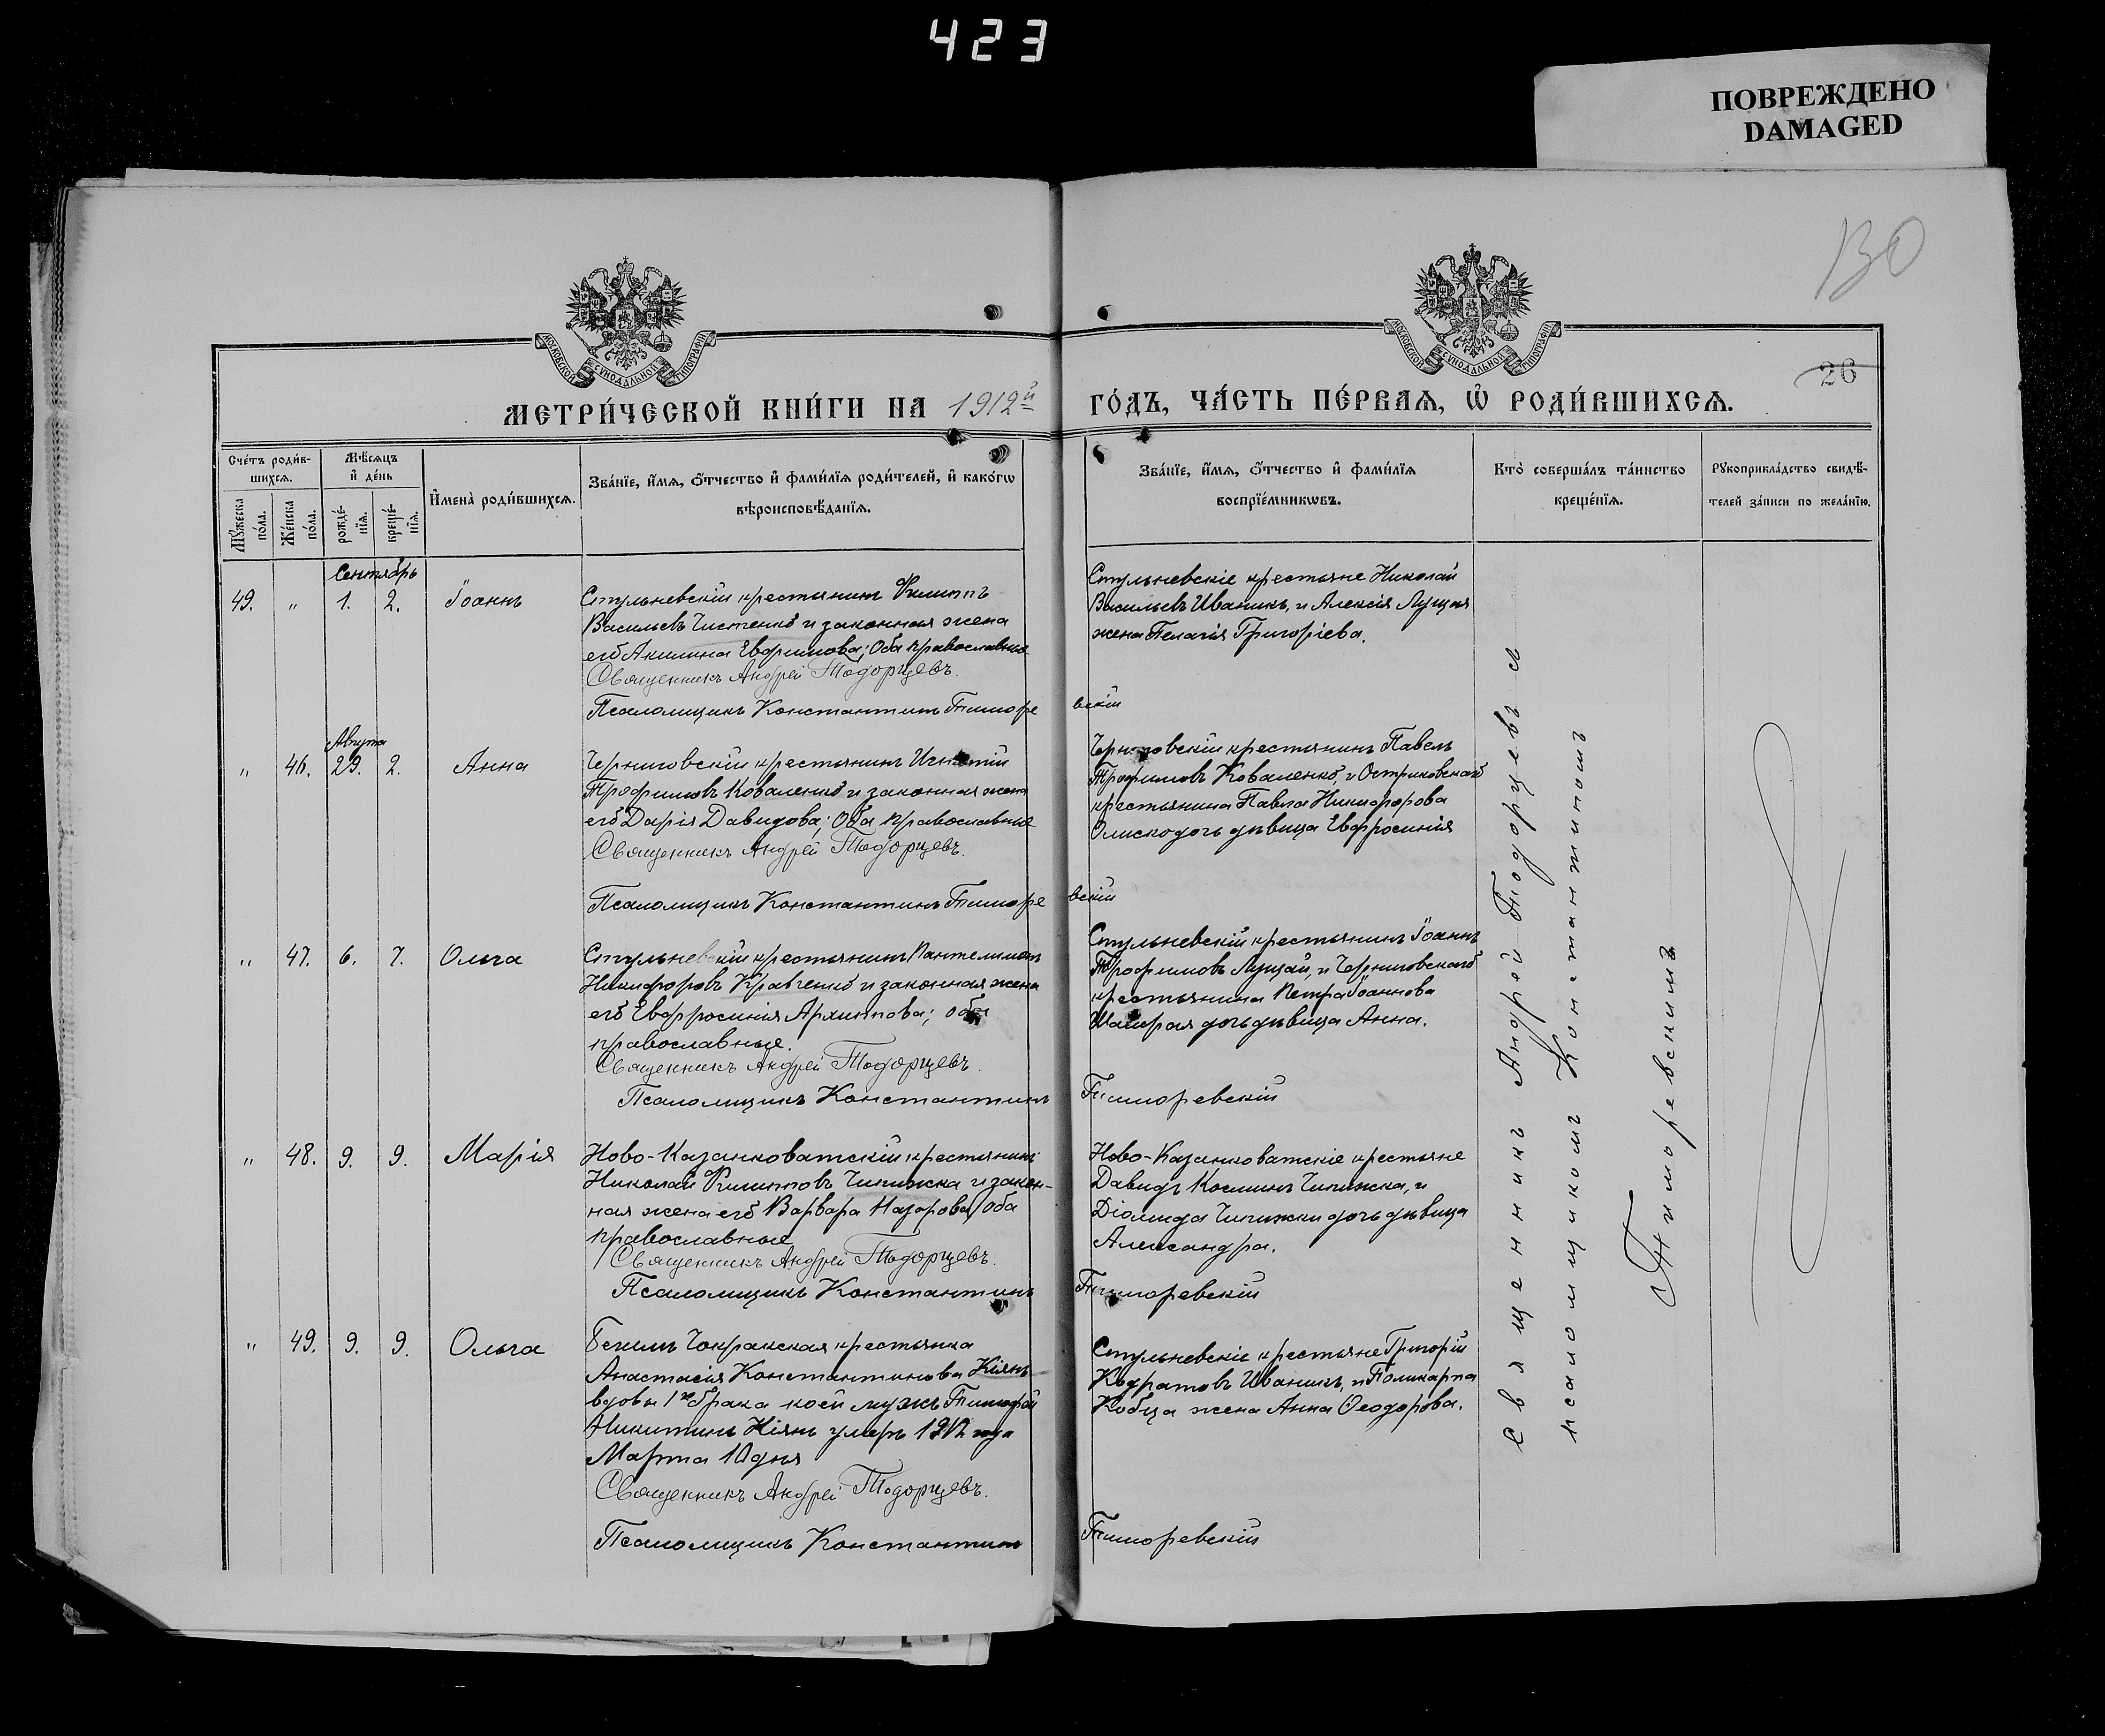 423
ПОВРЕЖДЕНО
DAMAGED
130
26
МОСКОВСКОЙ СѴНОДАЛЬНОЙ ТИПОГРАФІИ
МОСКОВСКОЙ СѴНОДАЛЬНОЙ ТИПОГРАФІИ
МЕТРИ́ЧЕСКОЙ КНИ́ГИ НА 1912й ГО́ДЪ, ЧА́СТЬ ПЕ́РВАѦ, Ѡ҆ РОДИ́ВШИХСѦ.
Сче́тъ роди́в-
шихсѧ.
Мꙋ́жеска по́ла.
Же́нска по́ла.
Мѣ́сѧцъ
и҆ де́нь
рожде́-
нїѧ.
креще́-
нїѧ.
И҆мена̀ роди́вшихсѧ.
Зва́нїе, и҆́мѧ, ѻ҆́тчество и҆ фами́лїѧ роди́телей, и҆ како́гѡ
вѣроисповѣ́данїѧ.
Зва́нїе, и҆́мѧ, ѻ҆́тчество и҆ фами́лїѧ
воспрїе́мникѡвъ.
Кто̀ соверша́лъ та́инство
креще́нїѧ.
Рꙋкоприкла́дство свидѣ́-
телей за́писи по жела́нїю.
Сентябрь
49. " 1. 2. Іоаннъ
Стульневскій крестьянинъ Филиппъ
Васильевъ Чистенко и законная жена
его Акилина Евфимова; Оба православные
Священникъ Андрей Тодорцевъ.
Псаломщикъ Константинъ Тиморевскій
Стульневскіе крестьяне Николай
Васильевъ Иваникъ, и Алексія Луцая
жена Пелагія Григоріева.
Августа
" 46. 29. 2. Анна
Черниговскій крестьянинъ Игнатій
Трофимовъ Коваленко и законная жена
его Дарія Давидова; Оба православные
Священникъ Андрей Тодорцевъ.
Псаломщикъ Константинъ Тиморевскій
Черниговскій крестьянинъ Павелъ
Трофимовъ Коваленко, и Остриковскаго
крестьянина Павла Никифорова
дочь дѣвица Евфросинія
" 47. 6. 7. Ольга
Стульневскій крестьянинъ Пантелимонъ
Никифоровъ Кравченко и законная жена
его Евфросинія Архиппова; оба
православные.
Священникъ Андрей Тодорцевъ.
Псаломщикъ Константинъ Тиморевскій
Стульневскій крестьянинъ Іоаннъ
Трофимовъ Луцай, и Черниговскаго
крестьянина Петра Іоаннова
дочь дѣвица Анна.
" 48. 9. 9. Марія
Ново-Казанковатскій крестьянинъ
Николай Филипповъ Чепижка и закон-
ная жена его Варвара Назарова, оба
православные
Священникъ Андрей Тодорцевъ.
Псаломщикъ Константинъ Тиморевскій
Ново-Казанковатскіе крестьяне
Давидъ Косминъ Чепижка, и
Діомида Чепижки дочь дѣвица
Александра.
" 49. 9. 9. Ольга
Бегимъ Чокракская крестьянка
Анастасія Константинова Кіянъ
вдова 1го брака коей мужъ Тимофей
Никитинъ Кіянъ умеръ 1912 года
Марта 10 дня
Священникъ Андрей Тодорцевъ.
Псаломщикъ Константинъ Тиморевскій
Стульневскіе крестьяне Григорій
Кодратовъ Иваникъ, и Поликарпа
Кобца жена Анна Ѳеодорова.
Священникъ Андрей Тодорцевъ съ
псаломщикомъ Константиномъ
Тиморевскимъ